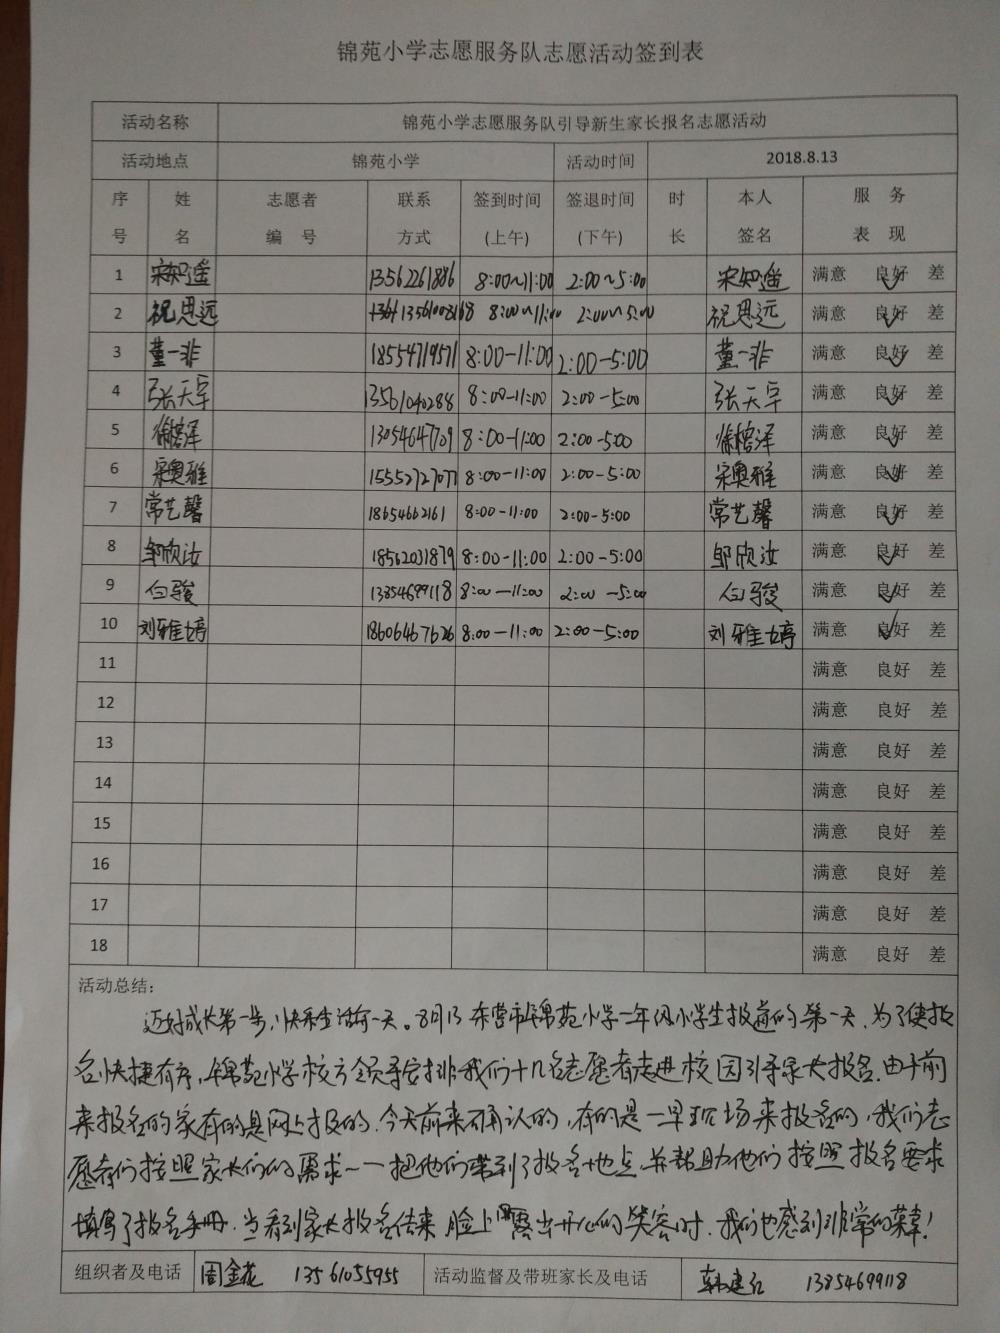 锦苑小学志愿服务队志愿活动签到表
活动名称 锦苑小学志愿服务队引导新生家长报名志愿活动
活动地点 锦苑小学 活动时间 2018.8.13
序号 姓名 志愿者编号 联系方式 签到时间(上午) 签退时间(下午) 时长 本人签名 服务表现
1 宋知遥 13562261886 8:00~11:00 2:00~5:00 宋知遥 满意 良好 差
2 祝思远 13561008168 8:00~11:00 2:00~5:00 祝思远 满意 良好 差
3 董一非 18554719571 8:00-11:00 2:00-5:00 董一非 满意 良好 差
4 张天宇 13561040288 8:00-11:00 2:00-5:00 张天宇 满意 良好 差
5 徐榕泽 13054647709 8:00-11:00 2:00-5:00 徐榕泽 满意 良好 差
6 宋奥雅 15552727077 8:00-11:00 2:00-5:00 宋奥雅 满意 良好 差
7 常艺馨 18654662161 8:00-11:00 2:00-5:00 常艺馨 满意 良好 差
8 邹欣汝 18562031879 8:00-11:00 2:00-5:00 邹欣汝 满意 良好 差
9 白骏 13854699118 8:00-11:00 2:00-5:00 白骏 满意 良好 差
10 刘雅婷 18606467626 8:00-11:00 2:00-5:00 刘雅婷 满意 良好 差
11 满意 良好 差
12 满意 良好 差
13 满意 良好 差
14 满意 良好 差
15 满意 良好 差
16 满意 良好 差
17 满意 良好 差
18 满意 良好 差
活动总结：
迈好成长第一步，快乐生活每一天。8月13东营市锦苑小学一年级小学生报道的第一天，为了使报
名快捷有序，锦苑小学校方领导安排我们十几名志愿者走进校园引导家长报名。由于前
来报名的家有的是网上报的，今天前来再认的，有的是一早现场来报名的，我们志
愿者们按照家长们的需求一一把他们带到了报名地点，并帮助他们按照报名要求
填写了报名手册，当看到家长报名结束脸上露出开心的笑容时，我们也感到非常的荣幸！
组织者及电话 周金花 13561055955 活动监督及带班家长及电话 韩建红 13854699118